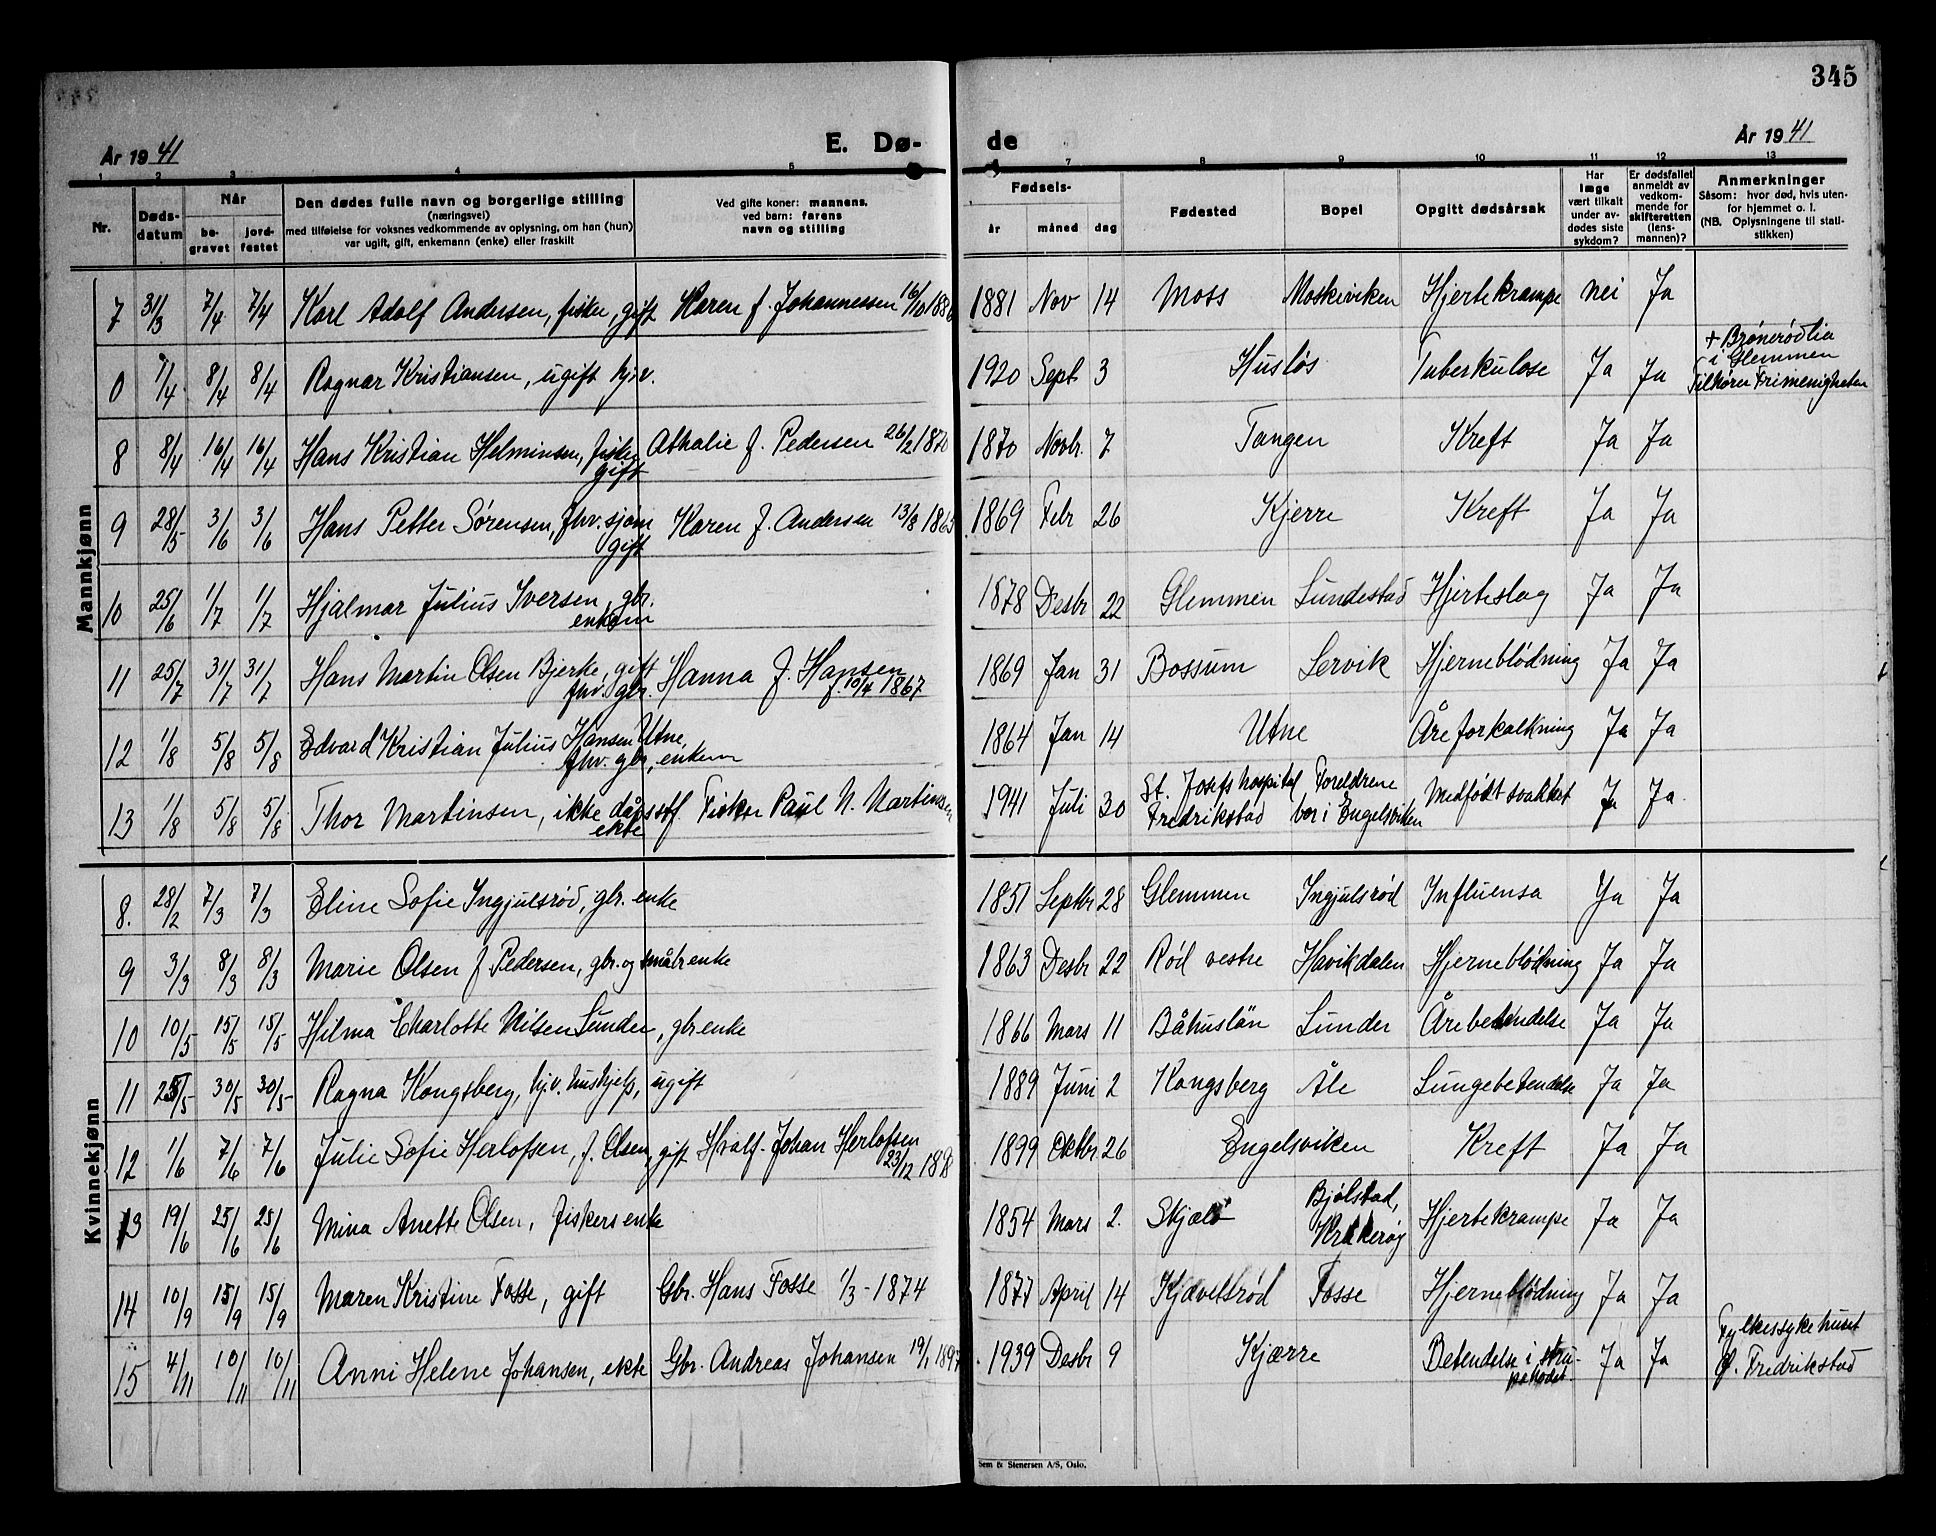 345
År 1941
E. Dø-
de
År 1941
1 2 3 4 5 6 7 8 9 10 11 12 13
Nr.
Døds-
datum
Når
be-
gravet
jord-
festet
Den dødes fulle navn og borgerlige stilling
(næringsvei)
med tilføielse for voksnes vedkommende av oplysning, om han (hun)
var ugift, gift, enkemann (enke) eller fraskilt
Ved gifte koner: mannens,
ved barn: farens
navn og stilling
Fødsels-
år måned dag
Fødested
Bopel
Opgitt dødsårsak
Har
læge
vært tilkalt
under av-
dødes siste
sykdom?
Er dødsfallet
anmeldt av
vedkom-
mende for
skifteretten
(lens-
mannen)?
Anmerkninger
Såsom: hvor død, hvis uten-
for hjemmet o. l.
(NB. Oplysningene til stati-
stikken)
Mannkjønn
7 31/3 7/4 7/4 Karl Adolf Andersen, fisker, gift Karen f. Johannessen 16/10 1886 1881 Nov 14 Moss Moskeviken Hjertekrampe nei Ja
0 1/4 8/4 8/4 Ragnar Kristiansen, ugift hjv. 1920 Sept 3 Husløs Tuberkulose Ja Ja + Brønerødlia
i Glemmen
Tilhører Frimenigheten
8 8/4 16/4 16/4 Hans Kristian Helminsen, fisker Athalie f. Pedersen 26/2 1870 1870 Novbr. 7 Tangen Kreft Ja Ja
gift
9 28/5 3/6 3/6 Hans Petter Sørensen, fhv. sjøm Karen f. Andersen 13/8 1865 1869 Febr 26 Kjerre Kreft Ja Ja
gift
10 25/6 1/7 1/7 Hjalmar Julius Iversen, gbr. 1878 Desbr 22 Glemmen Lundestad Hjerteslag Ja Ja
enkem
11 25/7 31/7 31/7 Hans Martin Olsen Bjerke, gift Hanna f. Hansen 1869 Jan 31 Bossum Lervik Hjerneblödning Ja Ja
fhv. gbr. 10/4 1867
12 1/8 5/8 5/8 Edvard Kristian Julius Hansen Utne, 1864 Jan 14 Utne Åreforkalkning Ja Ja
fhv. gbr, enkem
13 1/8 5/8 5/8 Thor Martinsen, ikke døpt stf. Fisker Paul N. Martinsen 1941 Juli 30 St. Josefs hospital, Foreldrene Medfødt svakhet Ja Ja
ekte Fredrikstad bor i Engelsviken
Kvinnekjønn
8. 28/2 7/3 7/3 Eline Sofie Ingjulsrød, gbr. enke 1851 Septbr 28 Glemmen Ingjulsrød Influensa Ja Ja
9 3/3 8/3 8/3 Marie Olsen f Pedersen, gbr. og småbr enke 1863 Desbr 22 Rød vestre Havikdalen Hjerneblödning Ja Ja
10 10/5 15/5 15/5 Hilma Charlotte Nilsen Lunder, gbr enke 1866 Mars 11 Båhuslän Lunder Årebetendelse Ja Ja
11 25/5 30/5 30/5 Ragna Kongsberg, hjv. hushjelp, ugift 1889 Juni 2 Kongsberg Åle Lungebetendelse Ja Ja
12 1/6 7/6 7/6 Julie Sofie Herlofsen, f. Olsen, gift Hvalf. Johan Herlofsen 1899 Oktbr 26 Engelsviken Kreft Ja Ja
23/12 188
13 19/6 25/6 25/6 Mina Anette Olsen, fiskers enke 1854 Mars 2. Skjælø Bjølstad, Hjertekrampe Ja Ja
Kråkerøy
14 10/9 15/9 15/9 Maren Kristine Fosse, gift Gbr. Hans Fosse 1/3 - 1874 1877 April 14 Kjøvelsrød Fosse Hjerneblödning Ja Ja
15 4/11 10/11 10/11 Anni Helene Johansen, ekte Gbr. Andreas Johansen 19/1 1897 1939 Desbr 9 Kjærre Betendelse i stru- Ja Ja Fylkessykehuset
pehodet. Ø. Fredrikstad
Sem & Stenersen A/S, Oslo.